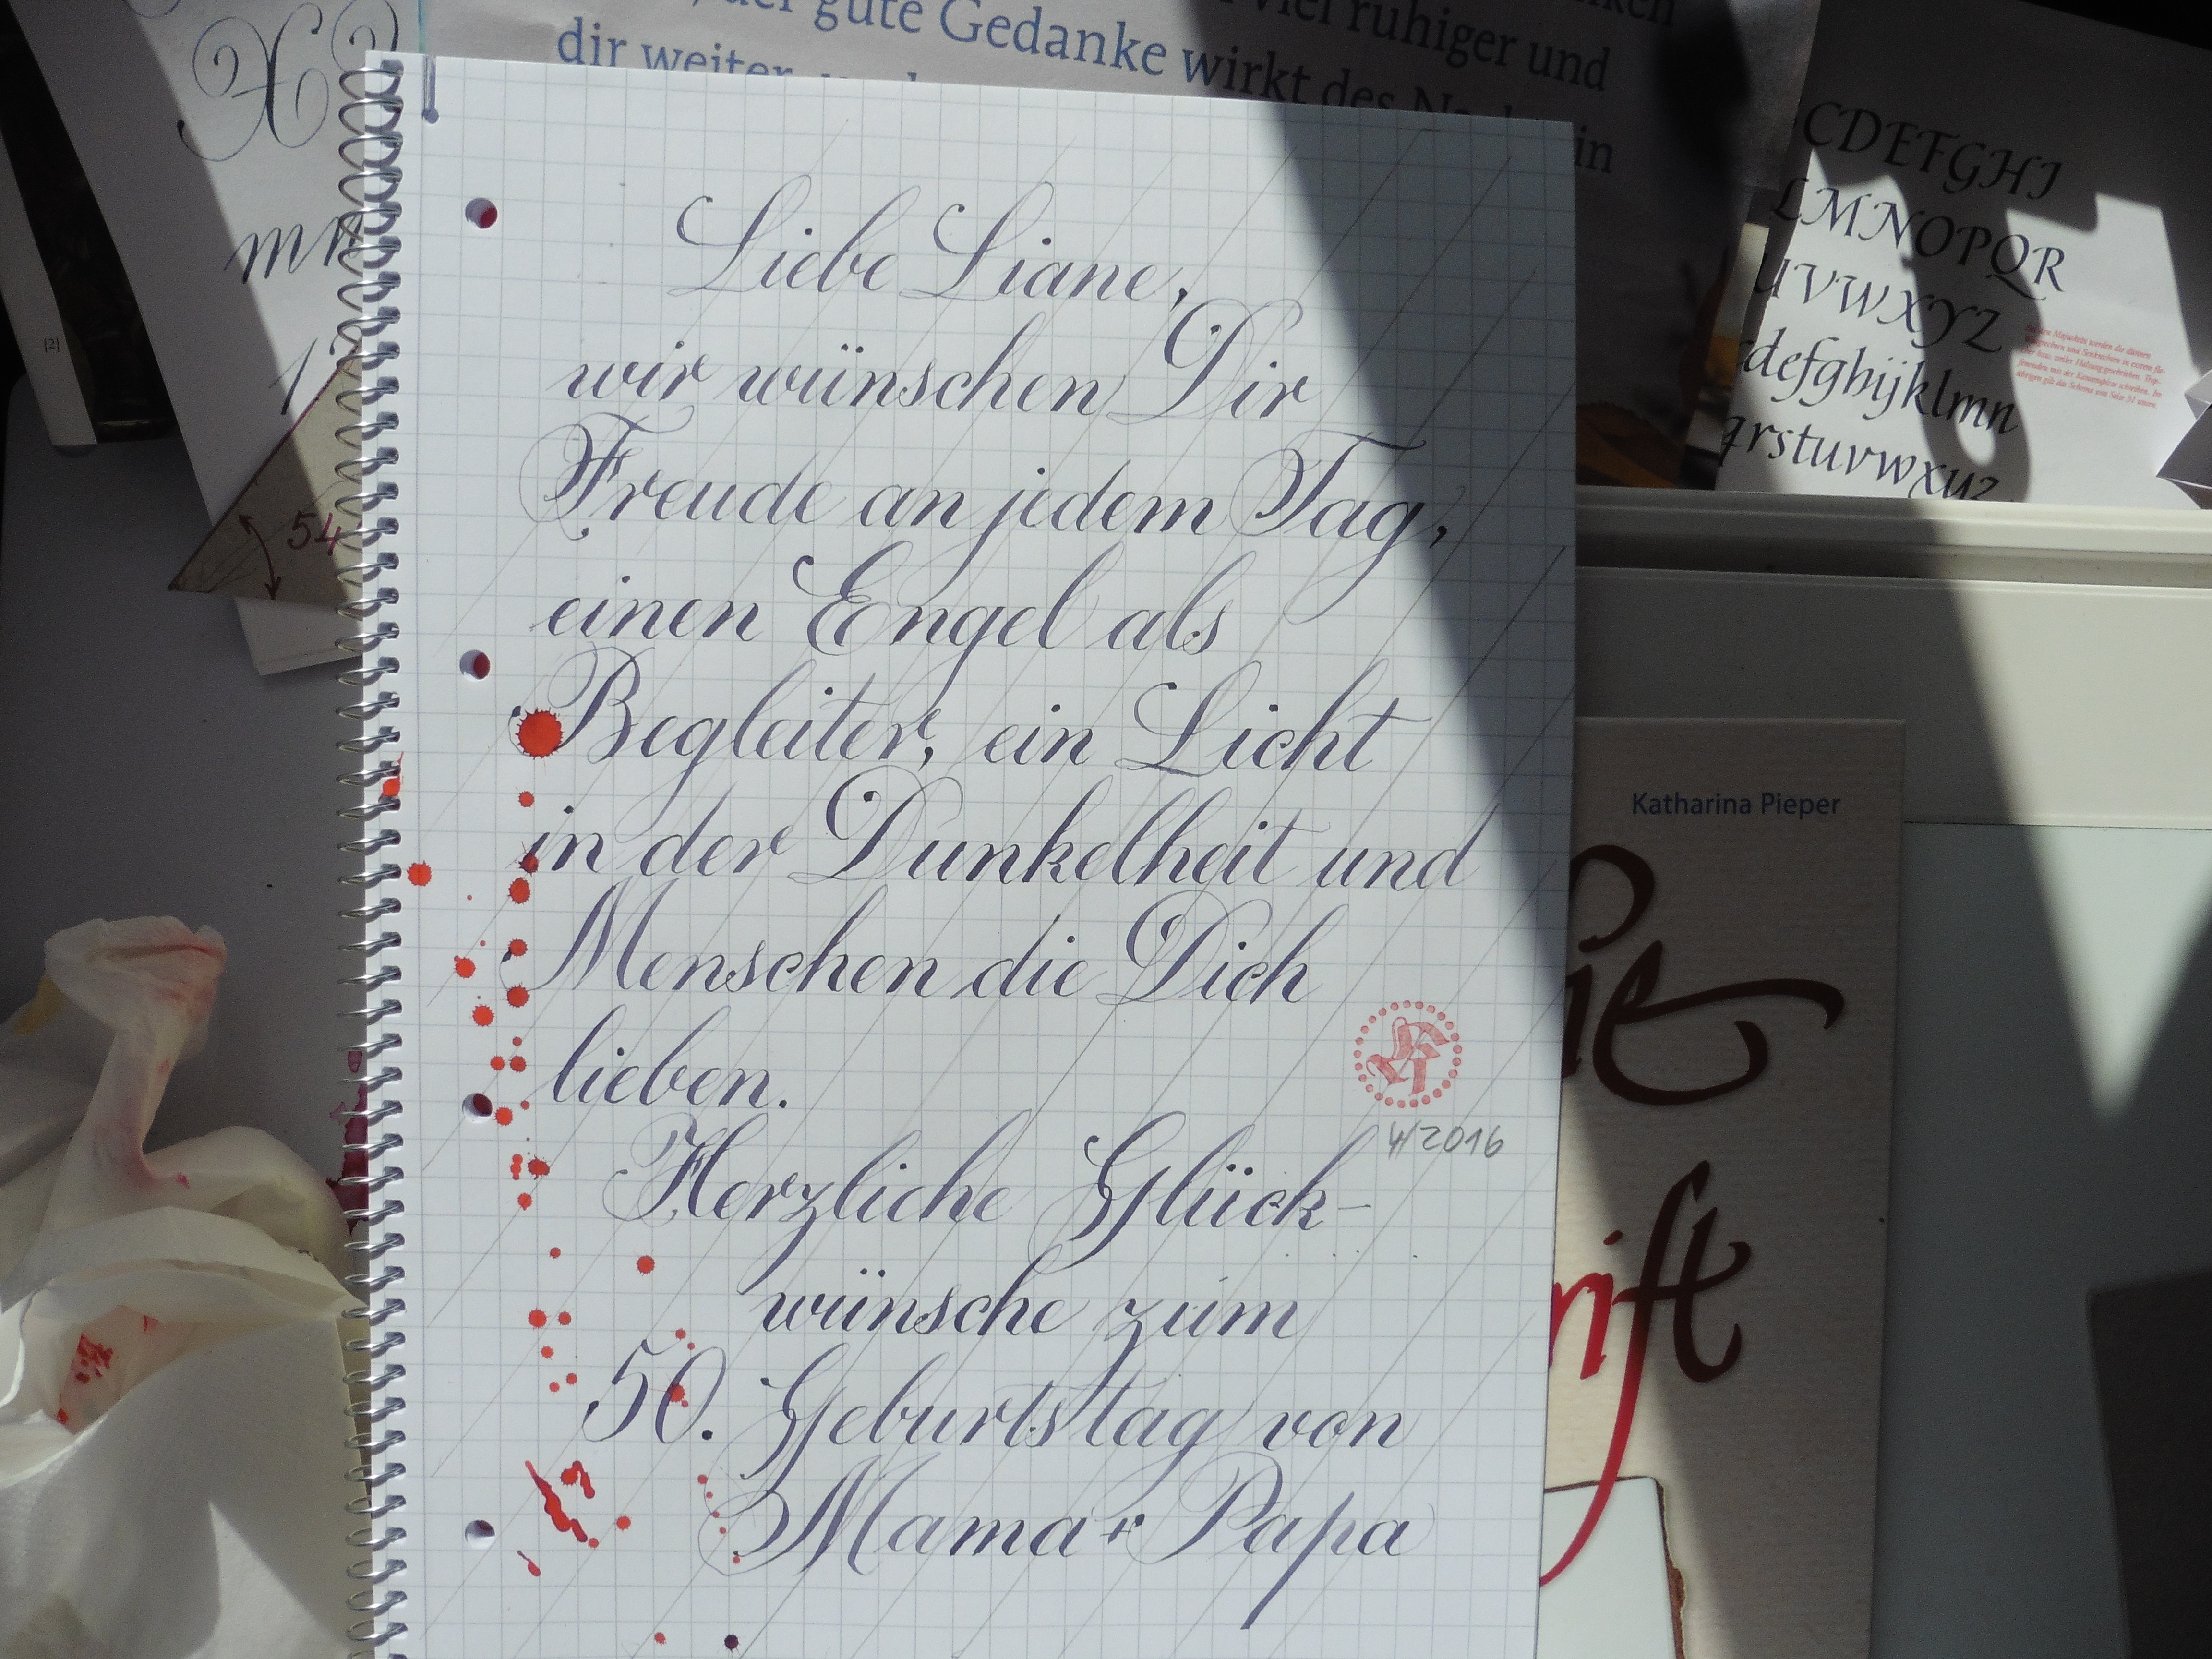 der gute Gedanke wirkt des
viel ruhiger und
dir weiter
in
mn
[2]
54
CDEFGHI
LMNOPQR
UVWXYZ
defghijklmn
qrstuvwxyz
Liebe Liane,
wir wünschen Dir
Freude an jedem Tag,
einen Engel als
Begleiter, ein Licht
in der Dunkelheit und
Menschen die Dich
lieben.
4/2016
Herzliche Glück-
wünsche zum
50. Geburtstag von
Mama + Papa
Katharina Pieper
ie
rift